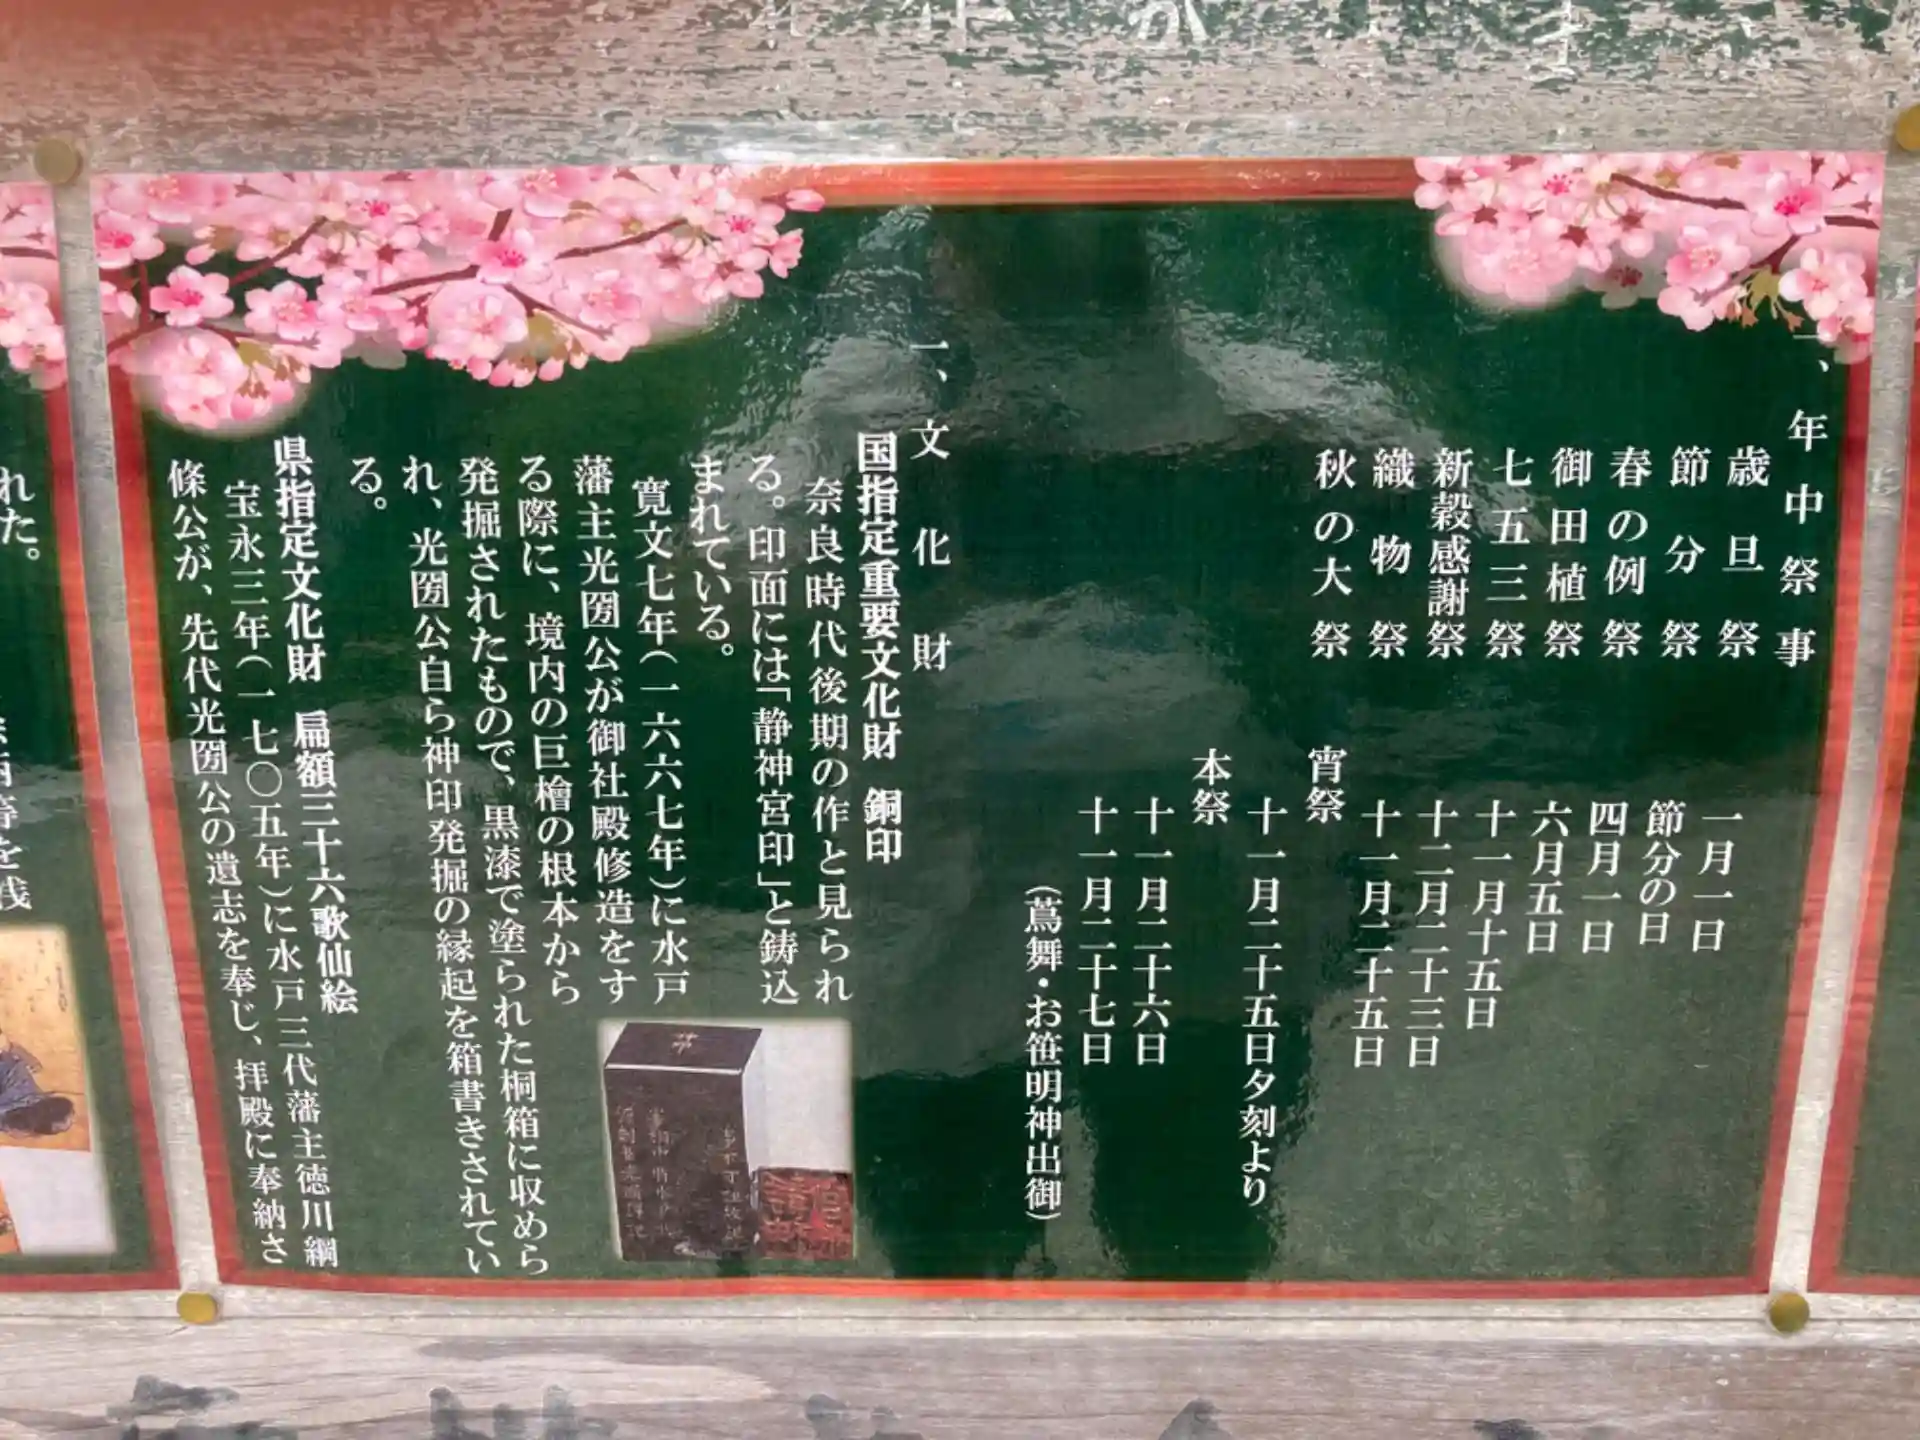 一、年中祭事
歳旦祭　一月一日
節分祭　節分の日
春の例祭　四月一日
御田植祭　六月五日
七五三祭　十一月十五日
新穀感謝祭　十二月二十三日
織物祭　十一月二十五日
秋の大祭
宵祭
十一月二十五日夕刻より
本祭
十一月二十六日
十一月二十七日
（蔦舞・お笹明神出御）
一、文化財
国指定重要文化財　銅印
奈良時代後期の作と見られ
る。印面には「静神宮印」と鋳込
まれている。
寛文七年（一六六七年）に水戸
藩主光圀公が御社殿修造をす
る際に、境内の巨檜の根本から
発掘されたもので、黒漆で塗られた桐箱に収めら
れ、光圀公自ら神印発掘の縁起を箱書きされてい
る。
県指定文化財　扁額三十六歌仙絵
宝永三年（一七〇五年）に水戸三代藩主徳川綱
條公が、先代光圀公の遺志を奉じ、拝殿に奉納さ
れた。